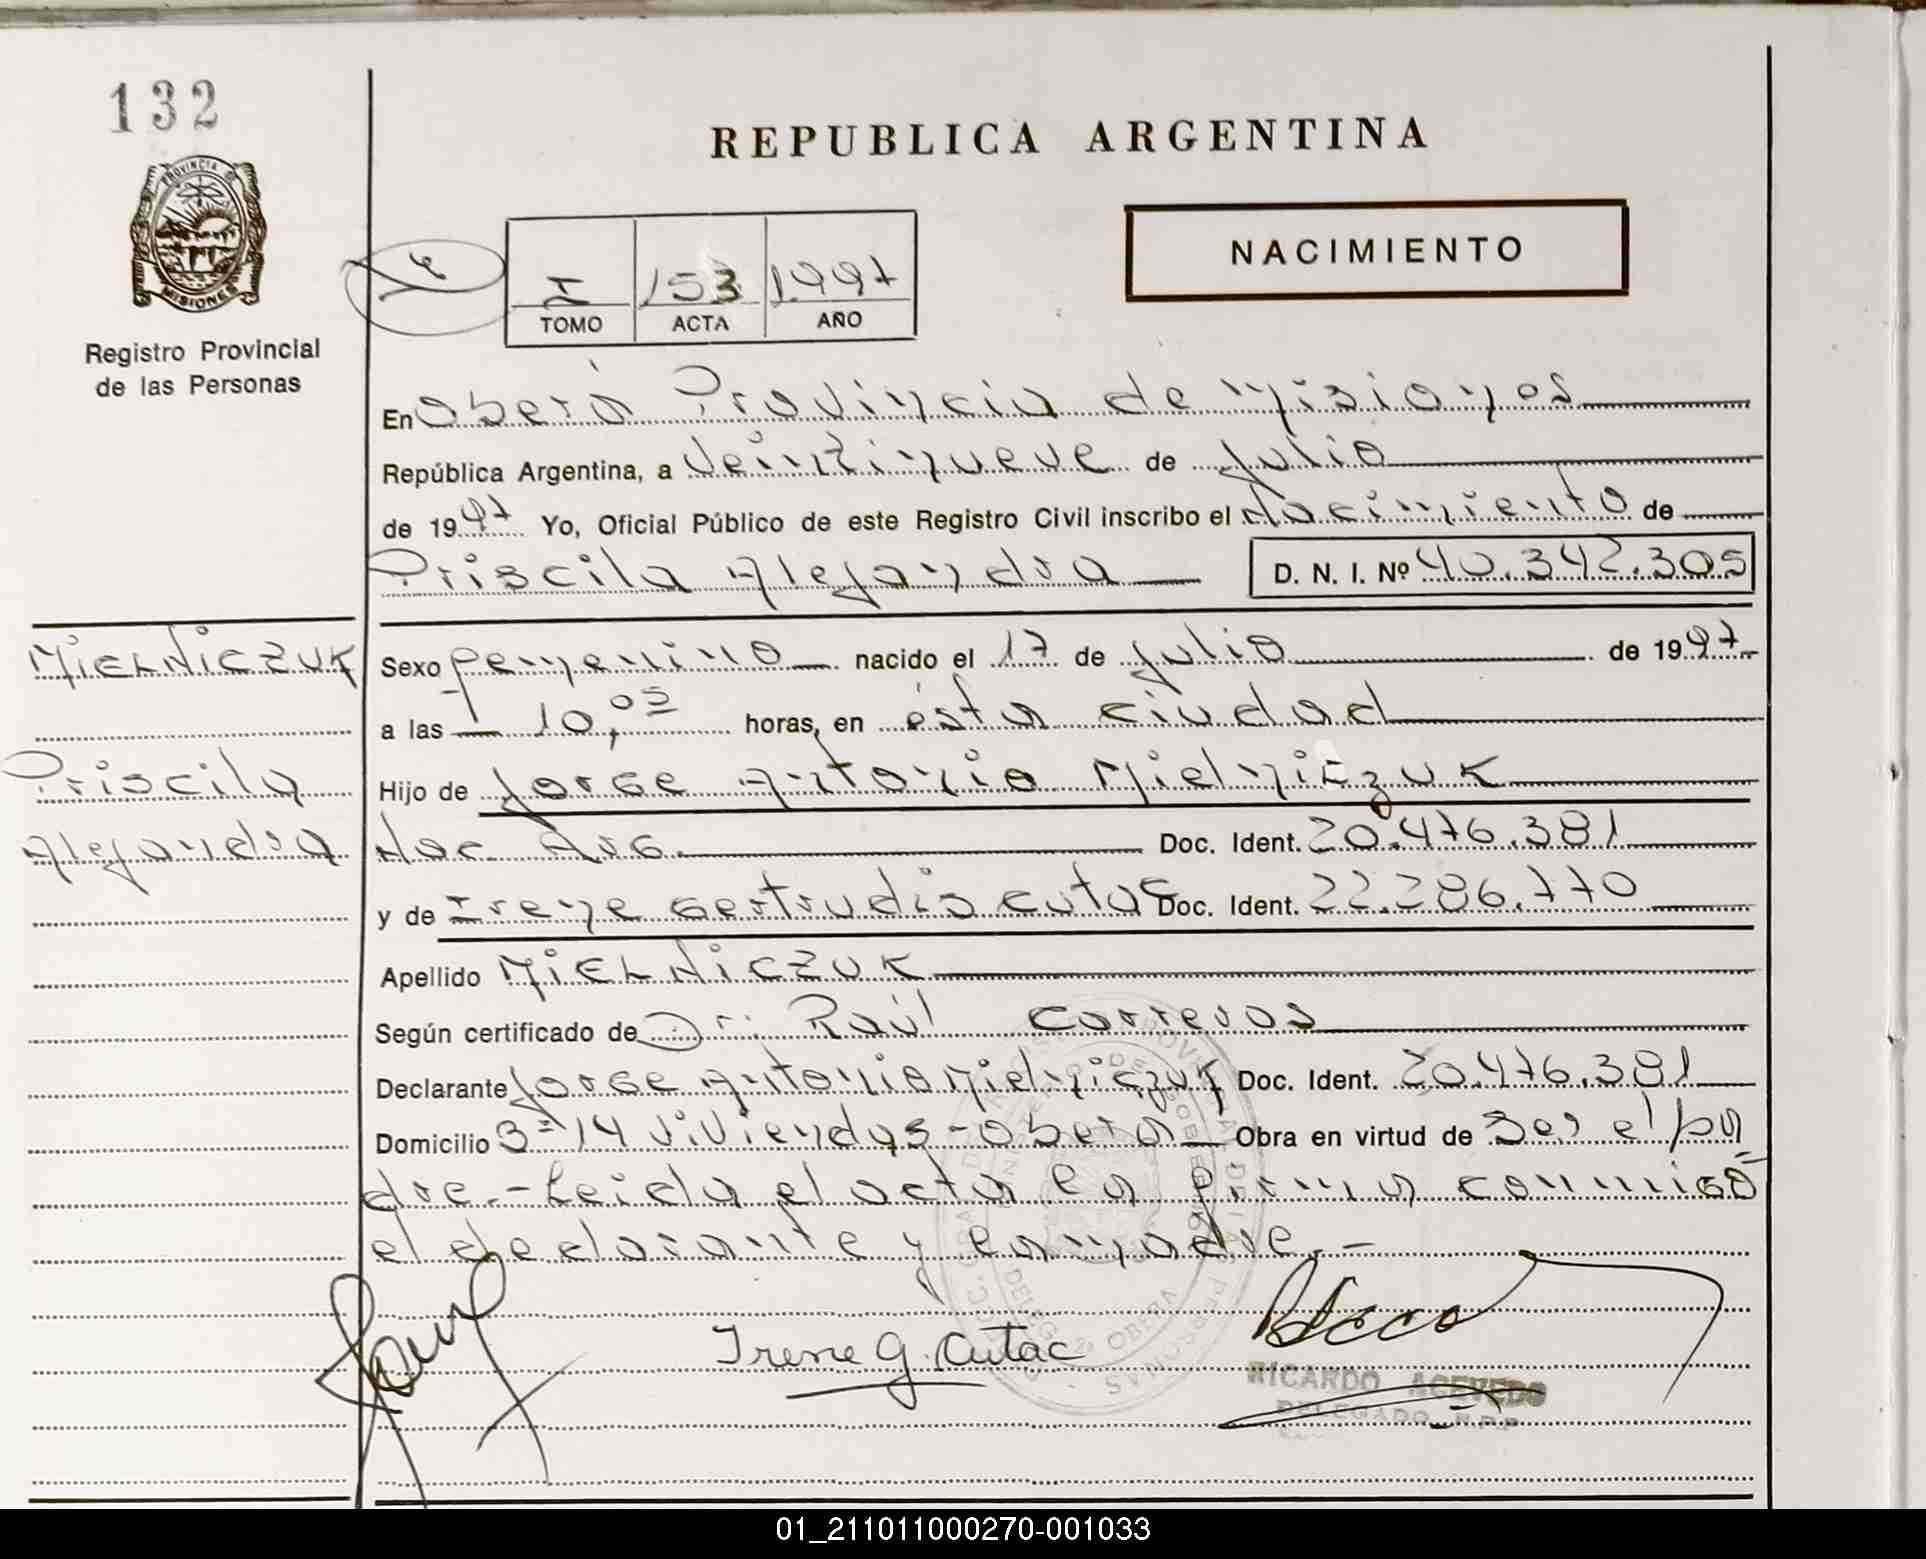 132
PROVINCIA DE
MISIONES
Registro Provincial
de las Personas
REPUBLICA ARGENTINA
NACIMIENTO
I 153 1997
TOMO ACTA AÑO
En Oberá Provincia de Misiones
República Argentina, a veintinueve de julio
de 1997 Yo, Oficial Público de este Registro Civil inscribo el nacimiento de
Priscila Alejandra D. N. I. Nº 40.342.305
MIELNICZUK
Sexo femenino nacido el 17 de julio de 1997
a las 10,05 horas, en ésta ciudad
Priscila
Hijo de Jorge Antonio Mielniczuk
Alejandra
Nac. Arg. Doc. Ident. 20.476.381
y de Irene Gertrudis Cutac Doc. Ident. 22.286.770
Apellido MIELNICZUK
Según certificado de Dr. Raúl
Declarante Jorge Antonio Mielniczuk Doc. Ident. 20.476.381
Domicilio 3= 14 viviendas - Oberá Obra en virtud de Ser el pa
dre.- Leida el acta la firma conmigo
el declarante y la madre.-
Irene G. Cutac
RICARDO ACEVEDO
DELEGADO R.P.P
01_211011000270-001033